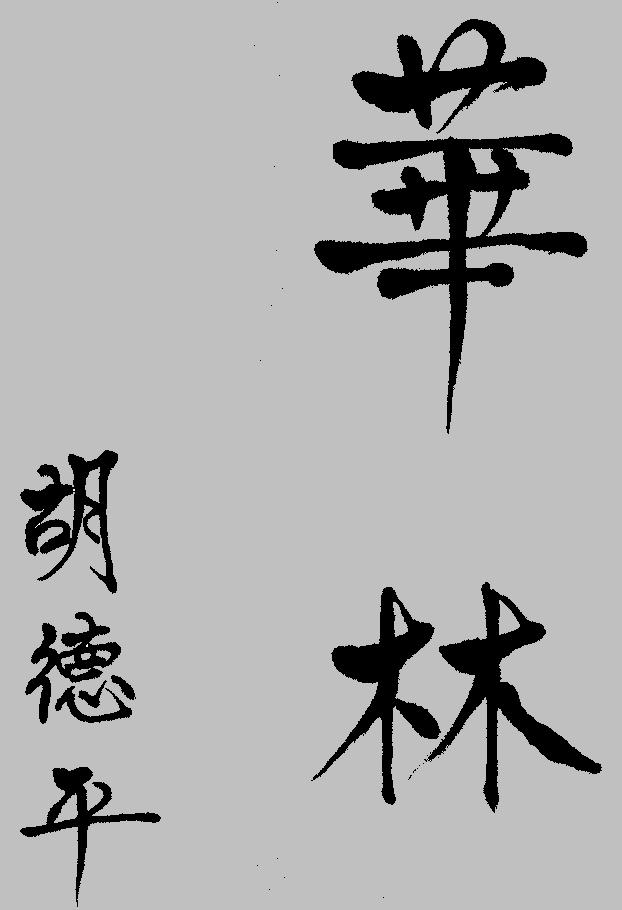 華林
胡德平